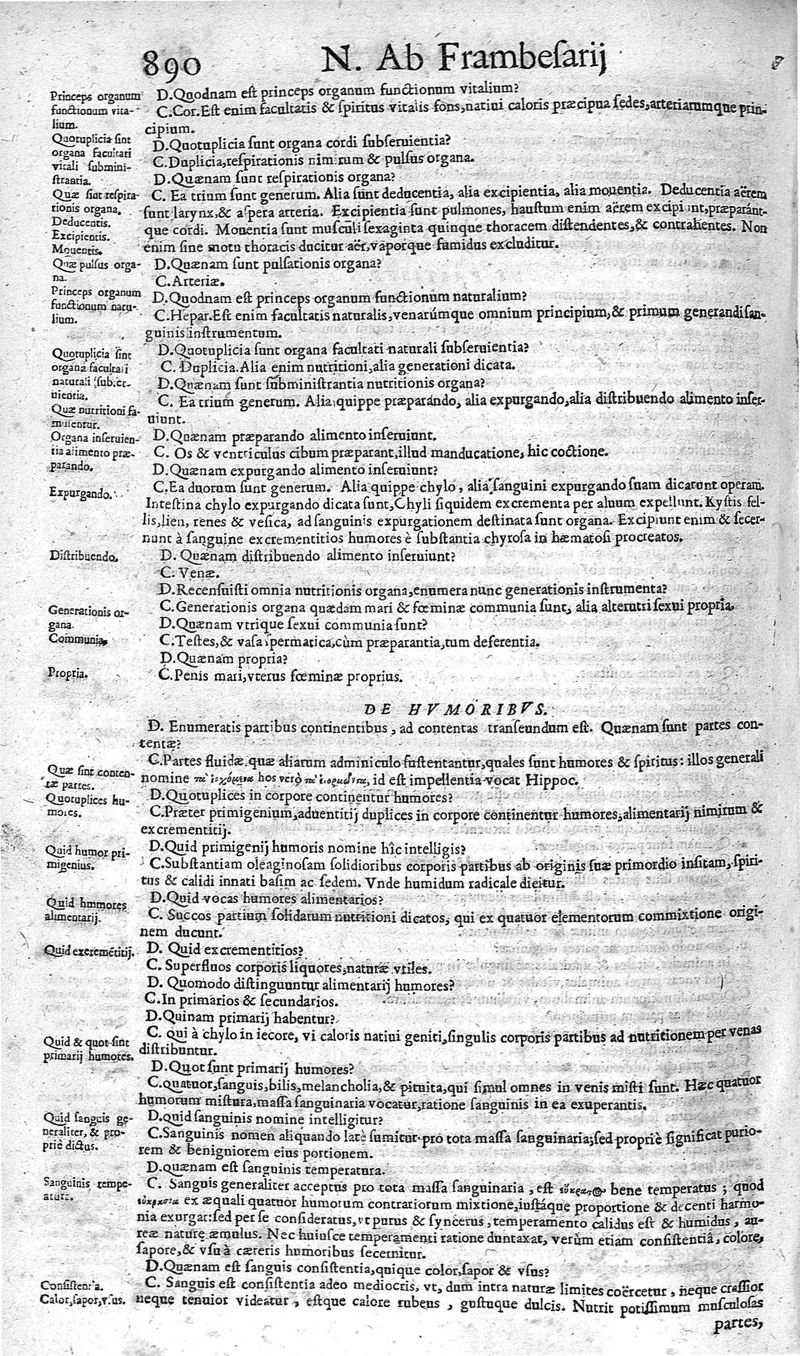 890 N. Ab Frambeſarij
Princeps organum
functionum vita-
lium.
Quotuplicia ſint
organa facultati
vitali ſubmini-
ſtrantia.
Quæ ſint reſpira-
tionis organa.
Deducentis.
Excipientis.
Mouentis.
Quæ pulſus orga-
na.
Princeps organum
functionum natu-
lium.
Quotuplicia ſint
organa facultati
naturali ſubſer-
uientia.
Quæ nutritioni fa-
mulentur.
Organa inſeruien-
tia alimento præ-
parando.
Expurgando.
Diſtribuendo.
Generationis or-
gana.
Communia.
Propria.
Quæ ſint conten-
tæ partes.
Quotuplices hu-
mores.
Quid humor pri-
migenius.
Quid hnmores
alimentarij.
Quid excremētitij.
Quid & quot ſint
primarij humores.
Quid ſanguis ge-
neraliter, & pro-
priè dictus.
Sanguinis tempe-
atura.
Conſistentia.
Calor, ſapor, vſus.
D. Quodnam eſt princeps organum functionum vitalium?
C. Cor. Eſt enim facultatis & ſpiritus vitalis fons, natiui caloris præcipua ſedes, arteriarumque prin-
cipium.
D. Quotuplicia ſunt organa cordi ſubſeruientia?
C. Duplicia, reſpirationis nimirum & pulſus organa.
D. Quænam ſunt reſpirationis organa?
C. Ea trium ſunt generum. Alia ſunt deducentia, alia excipientia, alia mouentia. Deducentia aërem
ſunt larynx, & aſpera arteria. Excipientia ſunt pulmones, hauſtum enim aërem excipiunt, præparánt-
que cordi. Mouentia ſunt muſculi ſexaginta quinque thoracem diſtendentes, & contrahentes. Non
enim ſine motu thoracis ducitur aër, vaporque fumidus excluditur.
D. Quænam ſunt pulſationis organa?
C. Arteriæ.
D. Quodnam eſt princeps organum functionum naturalium?
C. Hepar. Eſt enim facultatis naturalis, venarúmque omnium principium, & primum generandi ſan-
guinis inſtrumentum.
D. Quotuplicia ſunt organa facultati naturali ſubſeruientia?
C. Duplicia. Alia enim nutritioni, alia generationi dicata.
D. Quænam ſunt ſubminiſtrantia nutritionis organa?
C. Ea trium generum. Alia quippe præparando, alia expurgando, alia diſtribuendo alimento inſer-
uiunt.
D. Quænam præparando alimento inſeruiunt.
C. Os & ventriculus cibum præparant, illud manducatione, hic coctione.
D. Quænam expurgando alimento inſeruiunt?
C. Ea duorum ſunt generum. Alia quippe chylo, alia ſanguini expurgando ſuam dicarunt operam.
Inteſtina chylo expurgando dicata ſunt, Chyli ſiquidem excrementa per aluum expellunt. Kyſtis fel-
lis, lien, renes & veſica, ad ſanguinis expurgationem deſtinata ſunt organa. Excipiunt enim & ſecer-
nunt à ſanguine excrementitios humores è ſubſtantia chyroſa in hæmatoſi procreatos.
D. Quænam diſtribuendo alimento inſeruiunt?
C. Venæ.
D. Recenſuiſti omnia nutritionis organa, enumera nunc generationis inſtrumenta?
C. Generationis organa quædam mari & fœminæ communia ſunt, alia alterutri ſexui propria.
D. Quænam vtrique ſexui communia ſunt?
C. Teſtes, & vaſa ſpermatica, cùm præparantia, tum deferentia.
D. Quænam propria?
C. Penis mari, vterus fœminæ proprius.
DE HVMORIBVS.
D. Enumeratis partibus continentibus, ad contentas tranſeundum eſt. Quænam ſunt partes con-
tentæ?
C. Partes fluidæ, quæ aliarum adminiculo ſuſtentantur, quales ſunt humores & ſpiritus: illos generali
nomine hos verò id eſt impellentia vocat Hippoc.
D. Quotuplices in corpore continentur humores?
C. Præter primigenium, aduentitij duplices in corpore continentur humores, alimentarij nimirum &
excrementitij.
D. Quid primigenij humoris nomine hîc intelligis?
C. Subſtantiam oleaginoſam ſolidioribus corporis partibus ab originis ſuæ primordio inſitam, ſpiri-
tus & calidi innati baſim ac ſedem. Vnde humidum radicale dicitur.
D. Quid vocas humores alimentarios?
C. Succos partium ſolidarum nutritioni dicatos, qui ex quatuor elementorum commixtione origi-
nem ducunt.
D. Quid excrementitios?
C. Superfluos corporis liquores, naturæ vtiles.
D. Quomodo diſtinguuntur alimentarij humores?
C. In primarios & ſecundarios.
D. Quinam primarij habentur?
C. qui à chylo in iecore, vi caloris natiui geniti, ſingulis corporis partibus ad nutritionem per venas
diſtribuntur.
D. Quot ſunt primarij humores?
C. quatuor, ſanguis, bilis, melancholia, & pituita, qui ſimul omnes in venis miſti ſunt. Hæc quatuor
humorum miſtura, maſſa ſanguinaria vocatur, ratione ſanguinis in ea exuperantis.
D. quid ſanguinis nomine intelligitur?
C. Sanguinis nomen aliquando latè ſumitur pro tota maſſa ſanguinaria; ſed propriè ſignificat purio-
rem & benigniorem eius portionem.
D. quænam eſt ſanguinis temperatura.
C. Sanguis generaliter acceptus pro tota maſſa ſanguinaria, eſt bene temperatus; quod
ex æquali quatuor humorum contrariorum mixtione, iuſtáque proportione & decenti harmo-
nia exurgat: ſed per ſe conſideratus, vt purus & ſyncerus, temperamento calidus eſt & humidus, au-
reæ naturæ æmulus. Nec huiuſce temperamenti ratione duntaxat, verùm etiam conſiſtentiâ, colore,
ſapore, & vſu à cæteris humoribus ſecernitur.
D. Quænam eſt ſanguinis conſiſtentia, quique color, ſapor & vſus?
C. Sanguis eſt conſiſtentia adeo mediocris, vt, dum intra naturæ limites coërcetur, neque craſſior
neque tenuior videatur, eſtque calore rubens, guſtuque dulcis. Nutrit potiſſimum muſculoſas
partes,